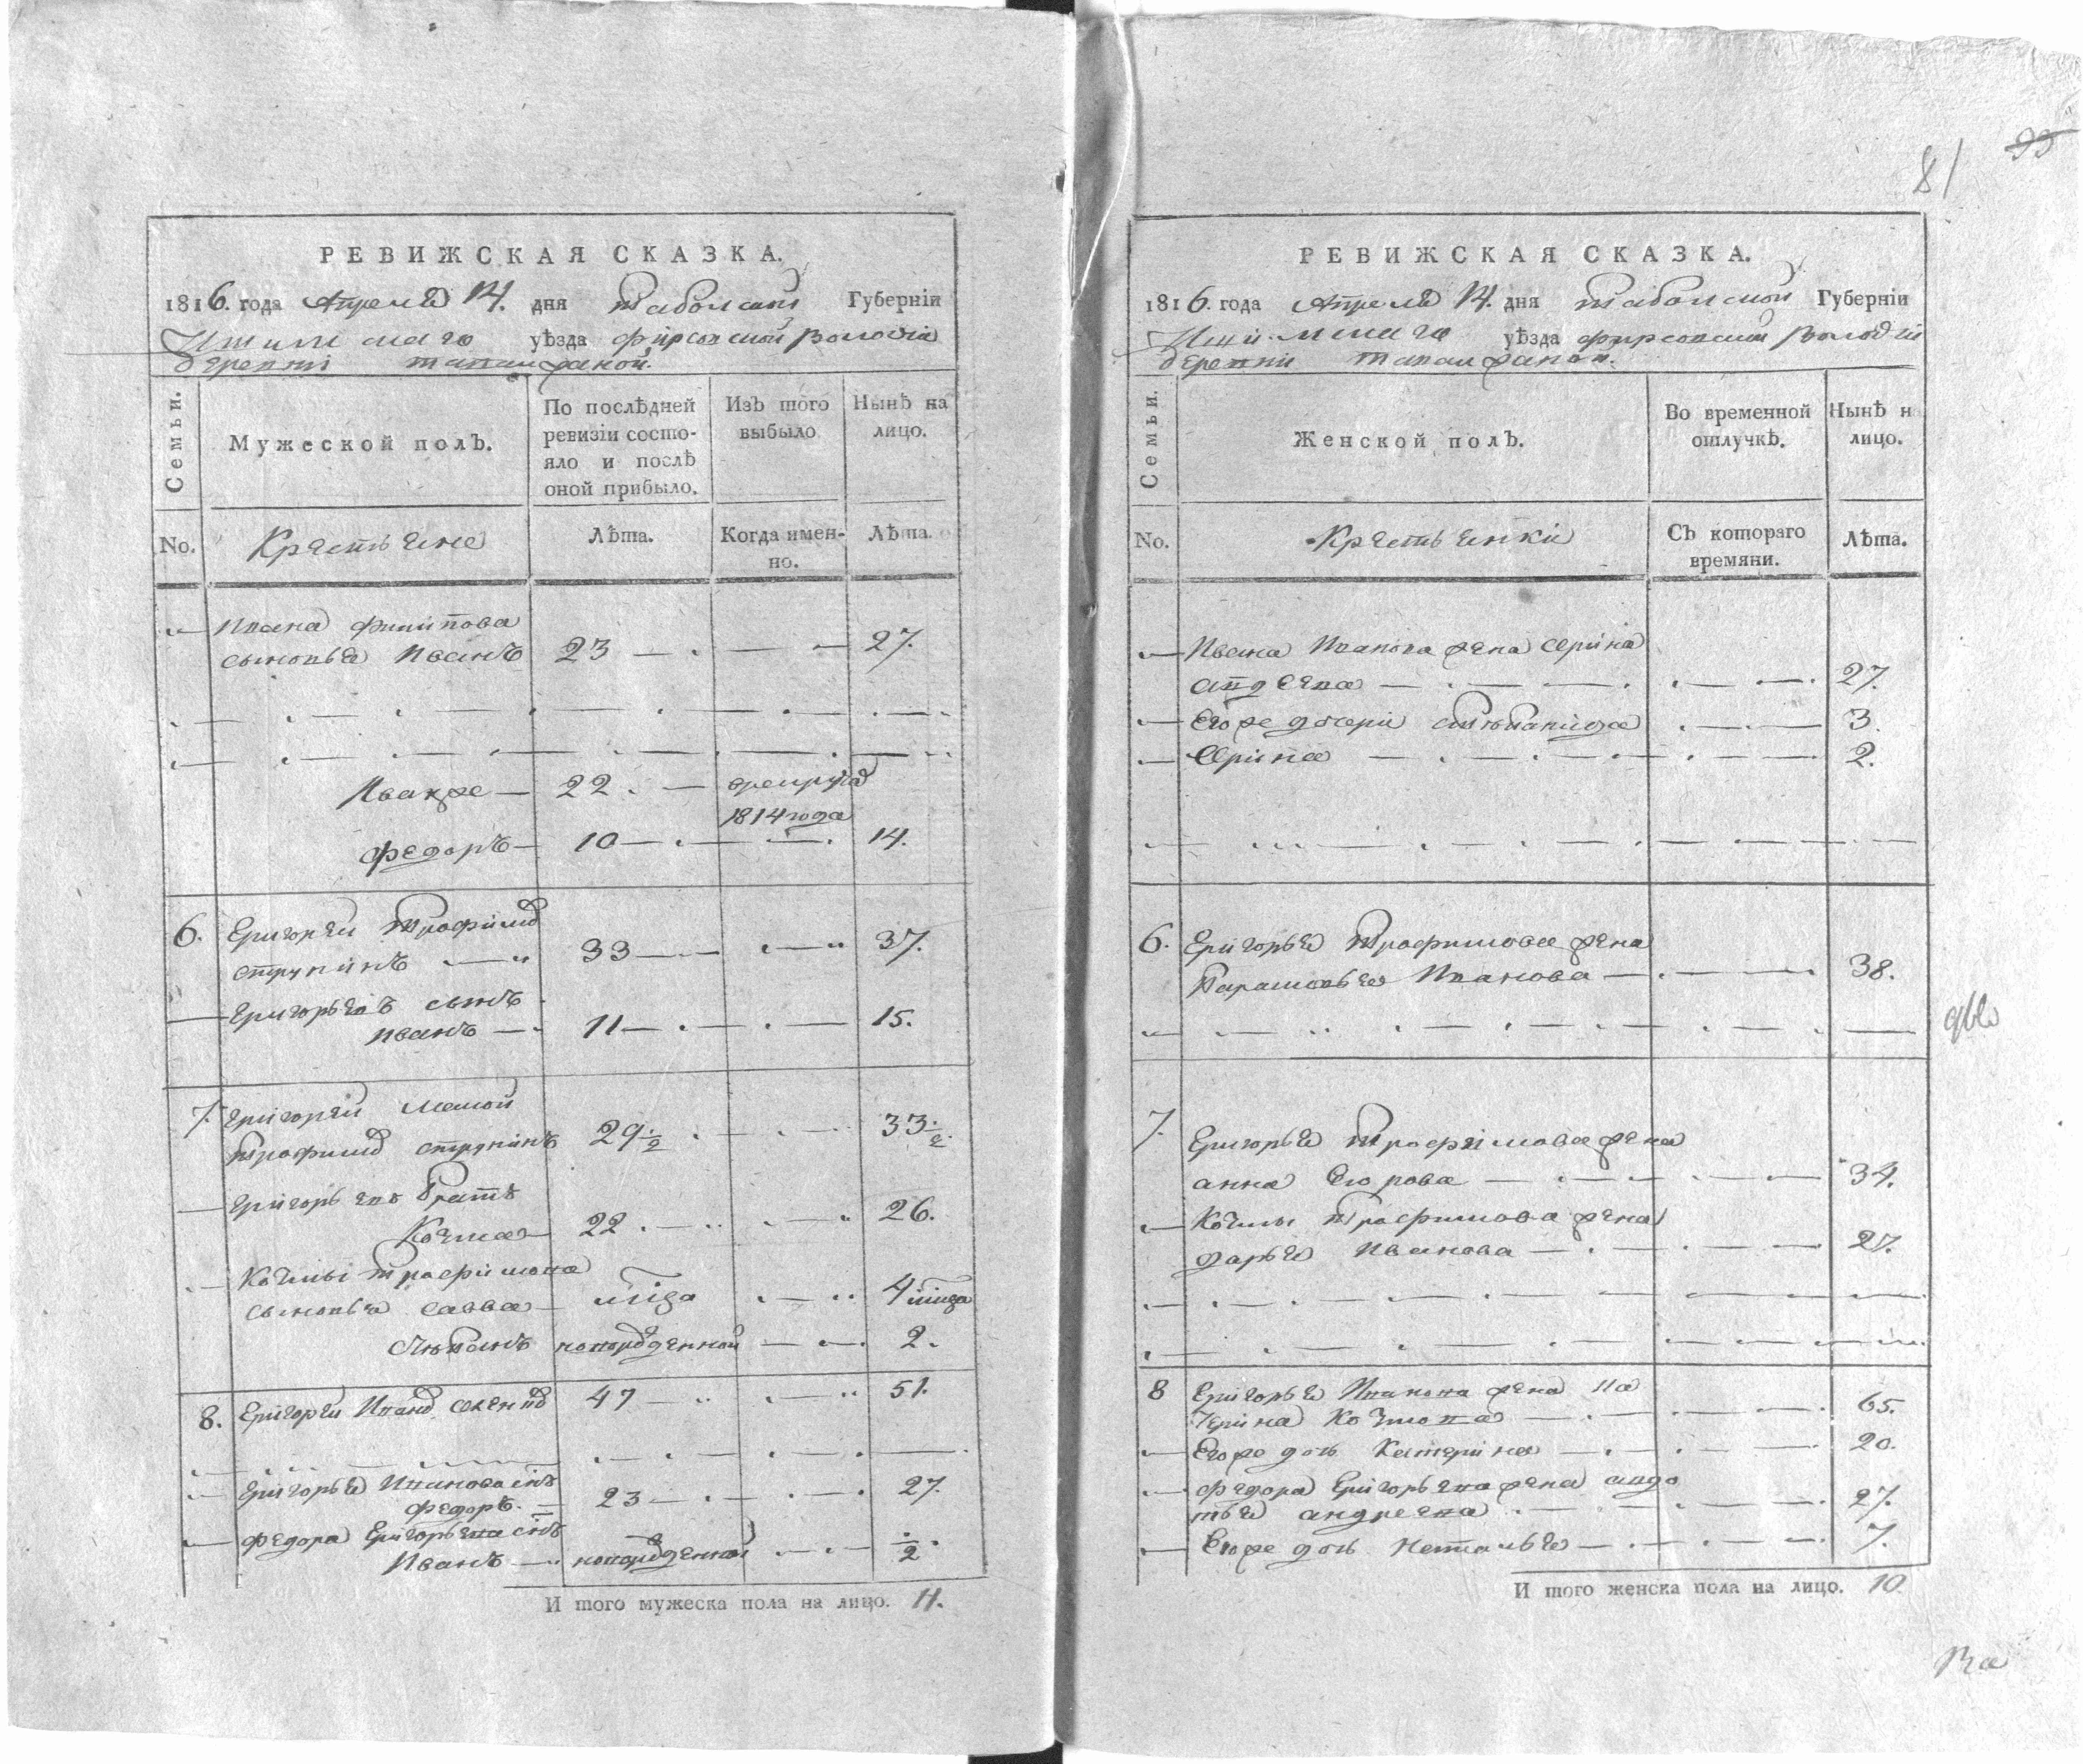 81 93
РЕВИЖСКАЯ СКАЗКА.
1816. года Апреля 14. дня Табольской Губерніи
Ишимскаго уѣзда Фирсовской Волости
деревни
Семьи.
Мужеской полъ.
По послѣдней ревизіи состо-
яло и послѣ
оной прибыло.
Изъ того
выбыло
Нынѣ на
лицо.
No.
Крестьяне
Лѣта.
Когда имен-
но.
Лѣта.
Ивана Филипова
сыновья Иванъ 23 27.
Иван же 22
1814 года
Федоръ 10 14.
6. Григорей Трофимов
33 37.
Григорьевъ сынъ
Иванъ 11 15.
7. Григорей меншой
Трофимов 29 1/2 33 1/2.
Григорьевъ братъ
Козма 22 26.
Козмы Трофимова
сыновья Савва 4
новорожденной 2.
8. Григорей Иванов 47 51.
Григорья Иванова сынъ
Федоръ. 23 27.
Федора Григорьева сынъ
Иванъ новорожденной 1/2.
И того мужеска пола на лицо. 11.
РЕВИЖСКАЯ СКАЗКА.
1816. года Апреля 14. дня Табольской Губерніи
Ишимскаго уѣзда Фирсовской Волости
деревни
Семьи.
Женской полъ.
Во временной
отлучкѣ.
Нынѣ н
лицо.
No.
Крестьянки
Съ котораго
времяни.
Лѣта.
Ивана Иванова жена Арина
27.
Его же дочери 3.
Арина 2.
6. Григорья Трофимова жена
Парасковья Иванова 38.
7. Григорья Трофимова жена
анна Егорова 34.
Козмы Трофимова жена
дарья Иванова 27.
8 Григорья Иванова жена Ка
терина Козмова 65.
Его же дочь Катерина 20.
Федора Григорьева жена авдо
тья андреева 27.
Его же дочь Наталья 7.
И того женска пола на лицо. 10